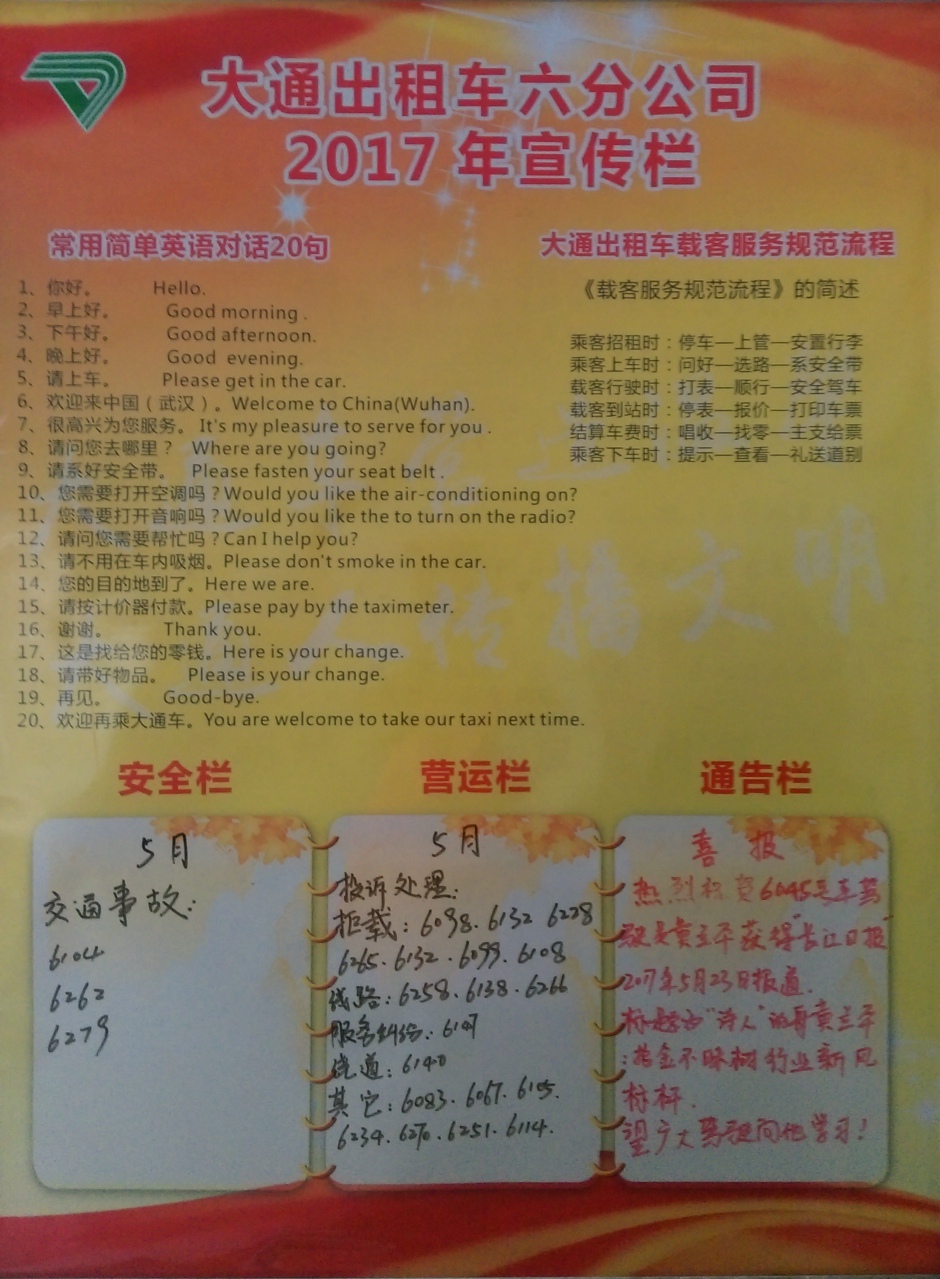 大通出租车六分公司
2017年宣传栏
常用简单英语对话20句
1、你好。 Hello.
2、早上好。 Good morning .
3、下午好。 Good afternoon.
4、晚上好。 Good evening.
5、请上车。 Please get in the car.
6、欢迎来中国（武汉）。Welcome to China(Wuhan).
7、很高兴为您服务。It's my pleasure to serve for you .
8、请问您去哪里？ Where are you going?
9、请系好安全带。 Please fasten your seat belt .
10、您需要打开空调吗？Would you like the air-conditioning on?
11、您需要打开音响吗？Would you like the to turn on the radio?
12、请问您需要帮忙吗？Can I help you?
13、请不用在车内吸烟。Please don't smoke in the car.
14、您的目的地到了。Here we are.
15、请按计价器付款。Please pay by the taximeter.
16、谢谢。 Thank you.
17、这是找给您的零钱。Here is your change.
18、请带好物品。 Please is your change.
19、再见。 Good-bye.
20、欢迎再乘大通车。You are welcome to take our taxi next time.
大通出租车载客服务规范流程
《载客服务规范流程》的简述
乘客招租时：停车—上管—安置行李
乘客上车时：问好—选路—系安全带
载客行驶时：打表—顺行—安全驾车
载客到站时：停表—报价—打印车票
结算车费时：唱收—找零—主支给票
乘客下车时：提示—查看—礼送道别
传播文明
安全栏
5月
交通事故：
6104
6262
6279
营运栏
5月
投诉处理：
拒载：6098.6132 6228
6265.6132.6099.6108
线路：6258.6138.6266
服务纠纷：6147
绕道：6140
其它：6083.6067.6105.
6234.6270.6251.6114.
通告栏
喜报
热烈祝贺6045号车驾
驶员黄立平获得"长江日报"
2017年5月23日报道.
标题为"诗人"的哥黄立平
：拾金不昧树行业新风
标杆.
望广大驾驶员向他学习！